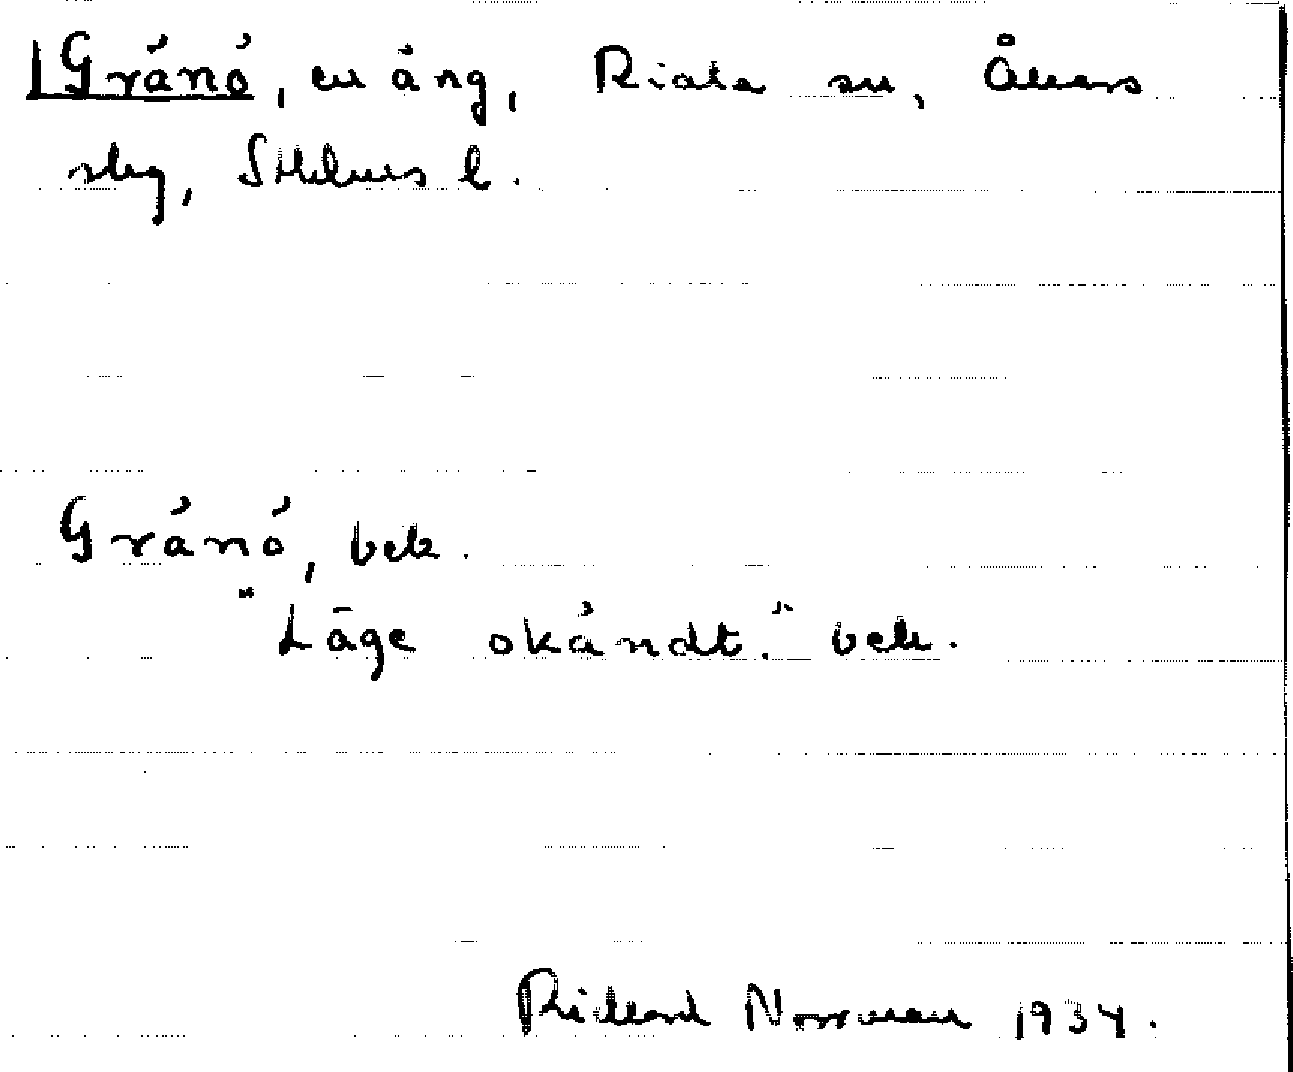 Gränö, en äng, Riala sn, Åkers
skg, Sthlms l.
Gränö, bek.
"Läge okändt." bek.
Rickard Norrman 1934.